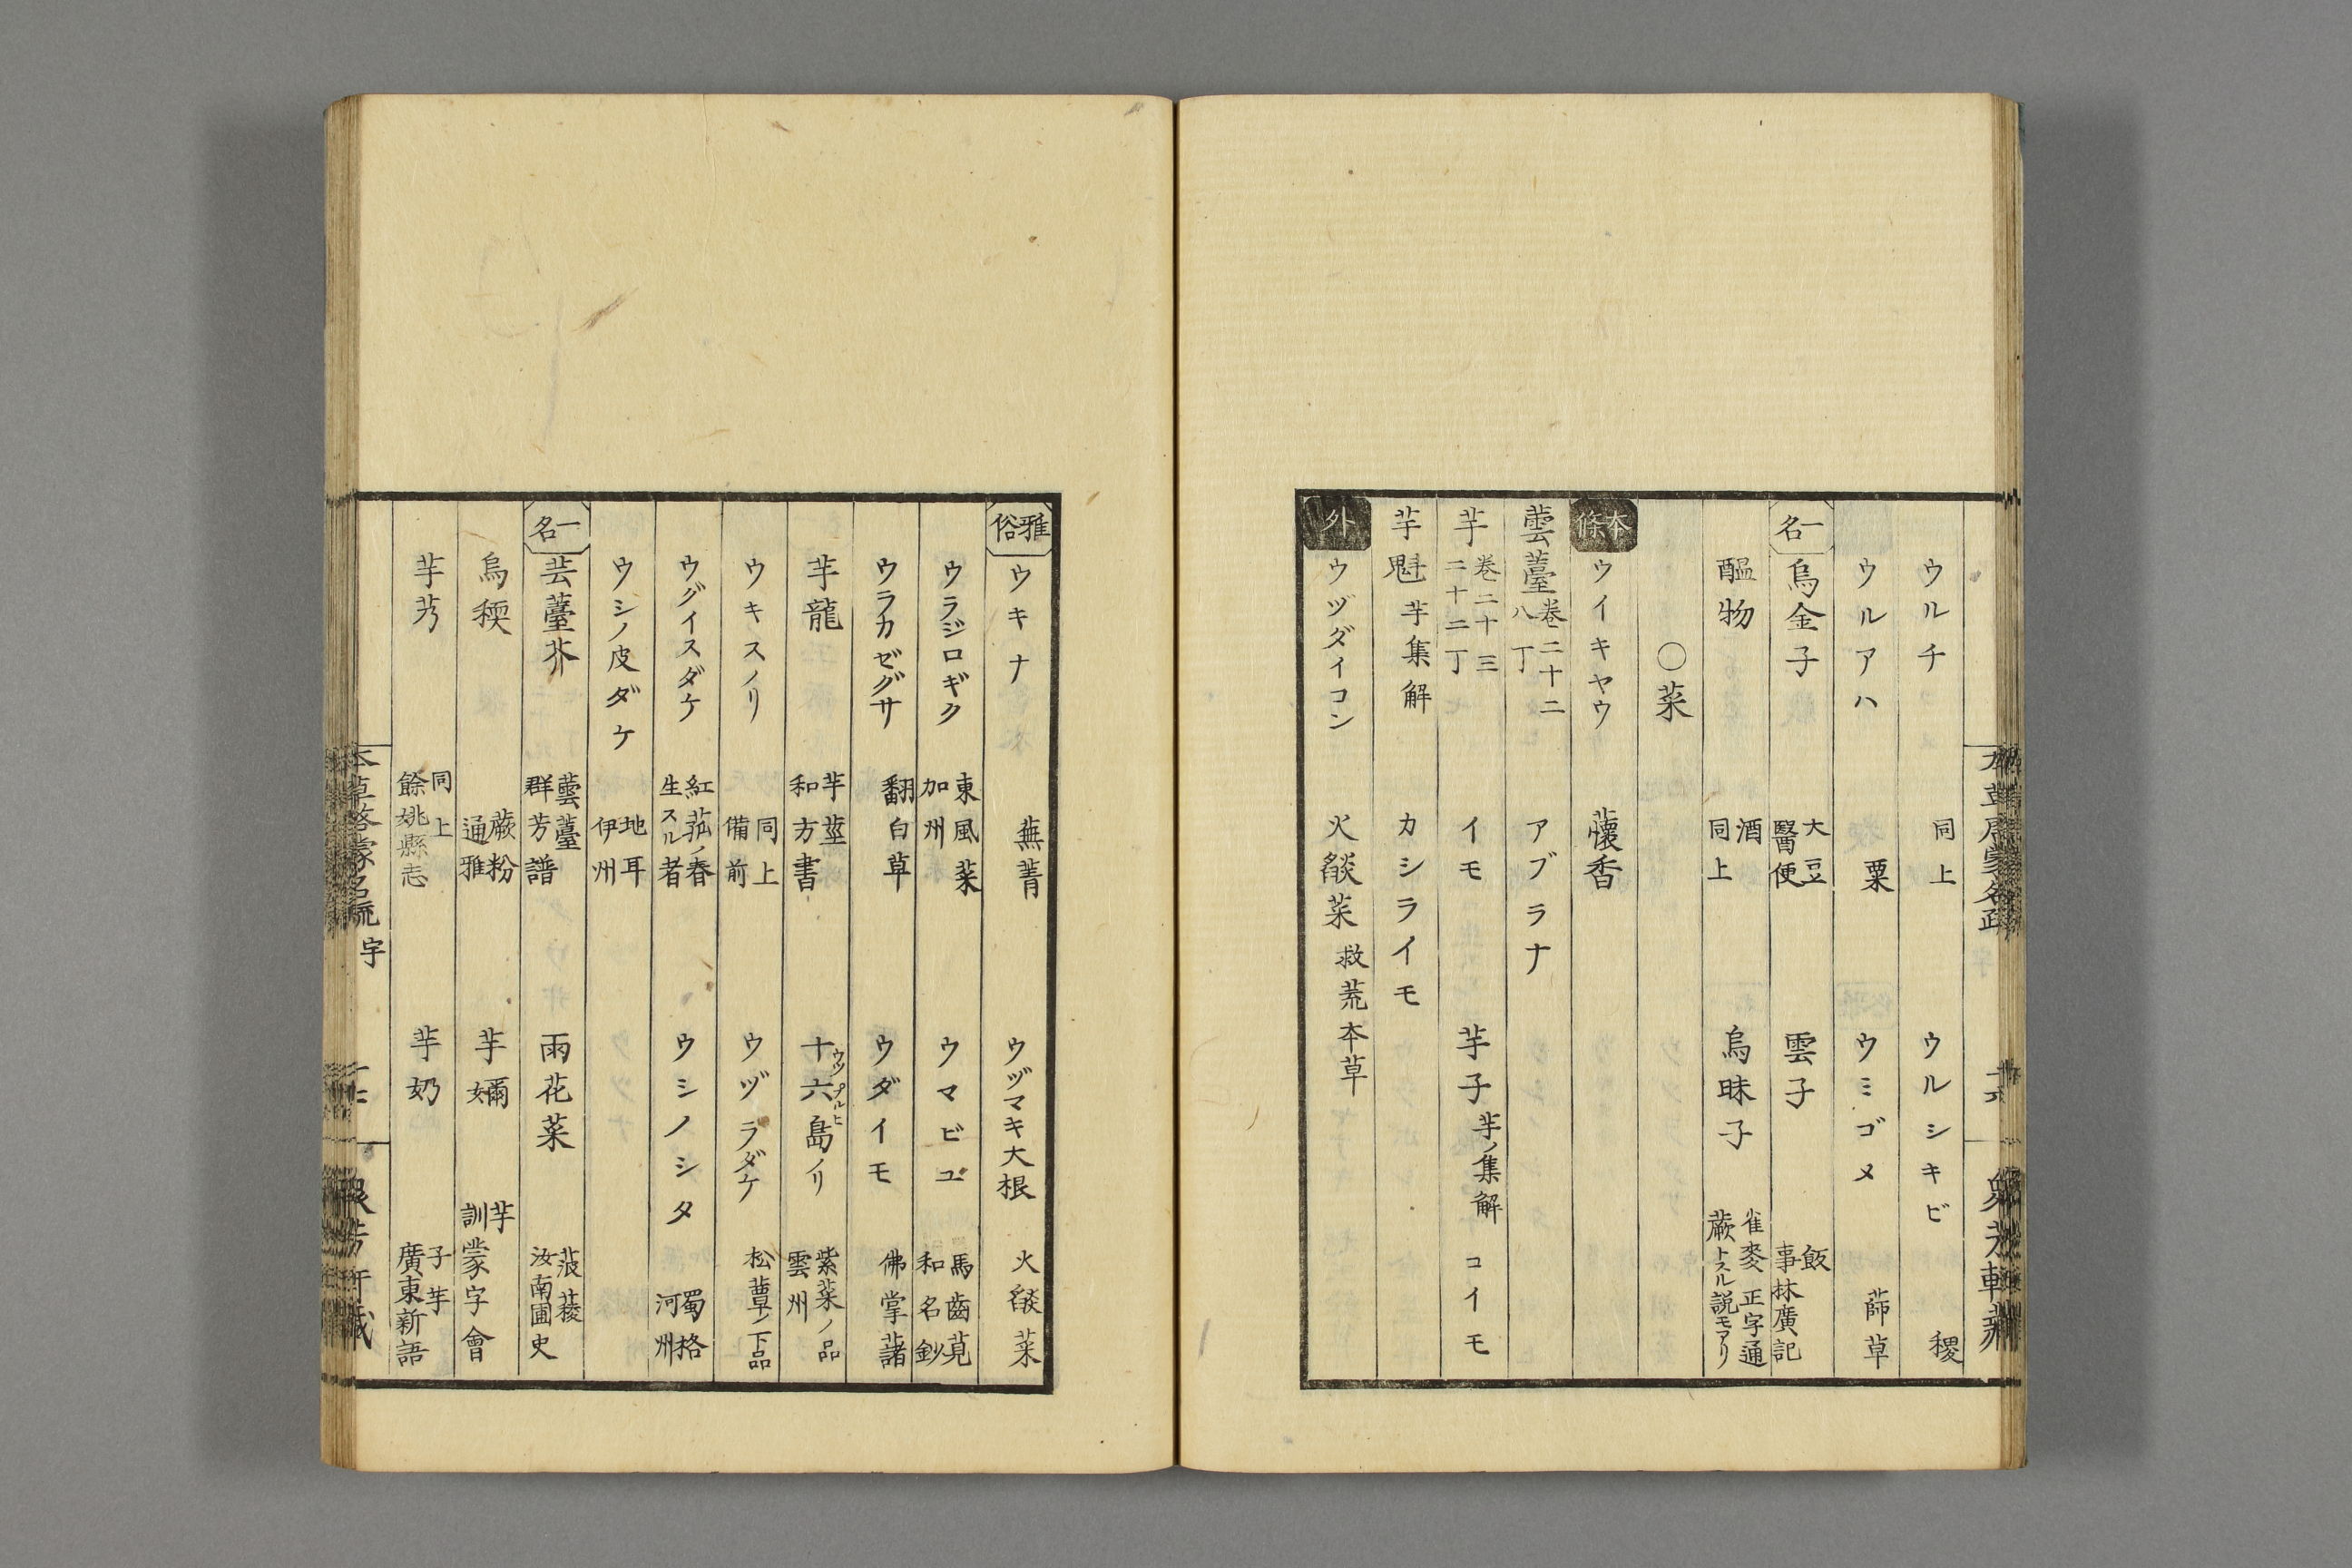 ウルチ 同上 ウルシキビ 稷
ウルアハ 粟 ウミゴメ 蒒草
一名 烏金子 大豆 醫便 雲子 飯 事林廣記
醞物 酒 同上 烏昧子 雀麥 正字通 蕨トスル説モアリ
〇菜
本條 ウイキヤウ 蘹香
蕓薹 巻二十二 八丁 アブラナ
芋 巻二十三 二十二丁 イモ 芋子 芋ノ集解 コイモ
芋魁 芋集解 カシライモ
外 ウヅダイコン 火燄菜 救荒本草
雅俗 ウキナ 蕪菁 ウヅマキ大根 火燄菜
ウラジロギク 東風菜 加州 ウマビユ 馬齒莧 和名鈔
ウラカゼグサ 翻白草 ウダイモ 佛掌藷
芋龍 芋莖 和方書 十六島ノリ ウツプルヒ 紫菜ノ品 雲州
ウキスノリ 同上 備前 ウヅラダケ 松蕈ノ下品
ウグイスダケ 紅菰ノ春 生スル者 ウシノシタ 蜀格 河州
ウシノ皮ダケ 地耳 伊州
一名 芸薹芥 蕓薹 群芳譜 雨花菜 菠薐 汝南圃史
烏稬 蕨粉 通雅 芋嬭 芋 訓蒙字會
芋艿 同上 餘姚縣志 芋奶 子芋 廣東新語
本草啓蒙名疏 宇